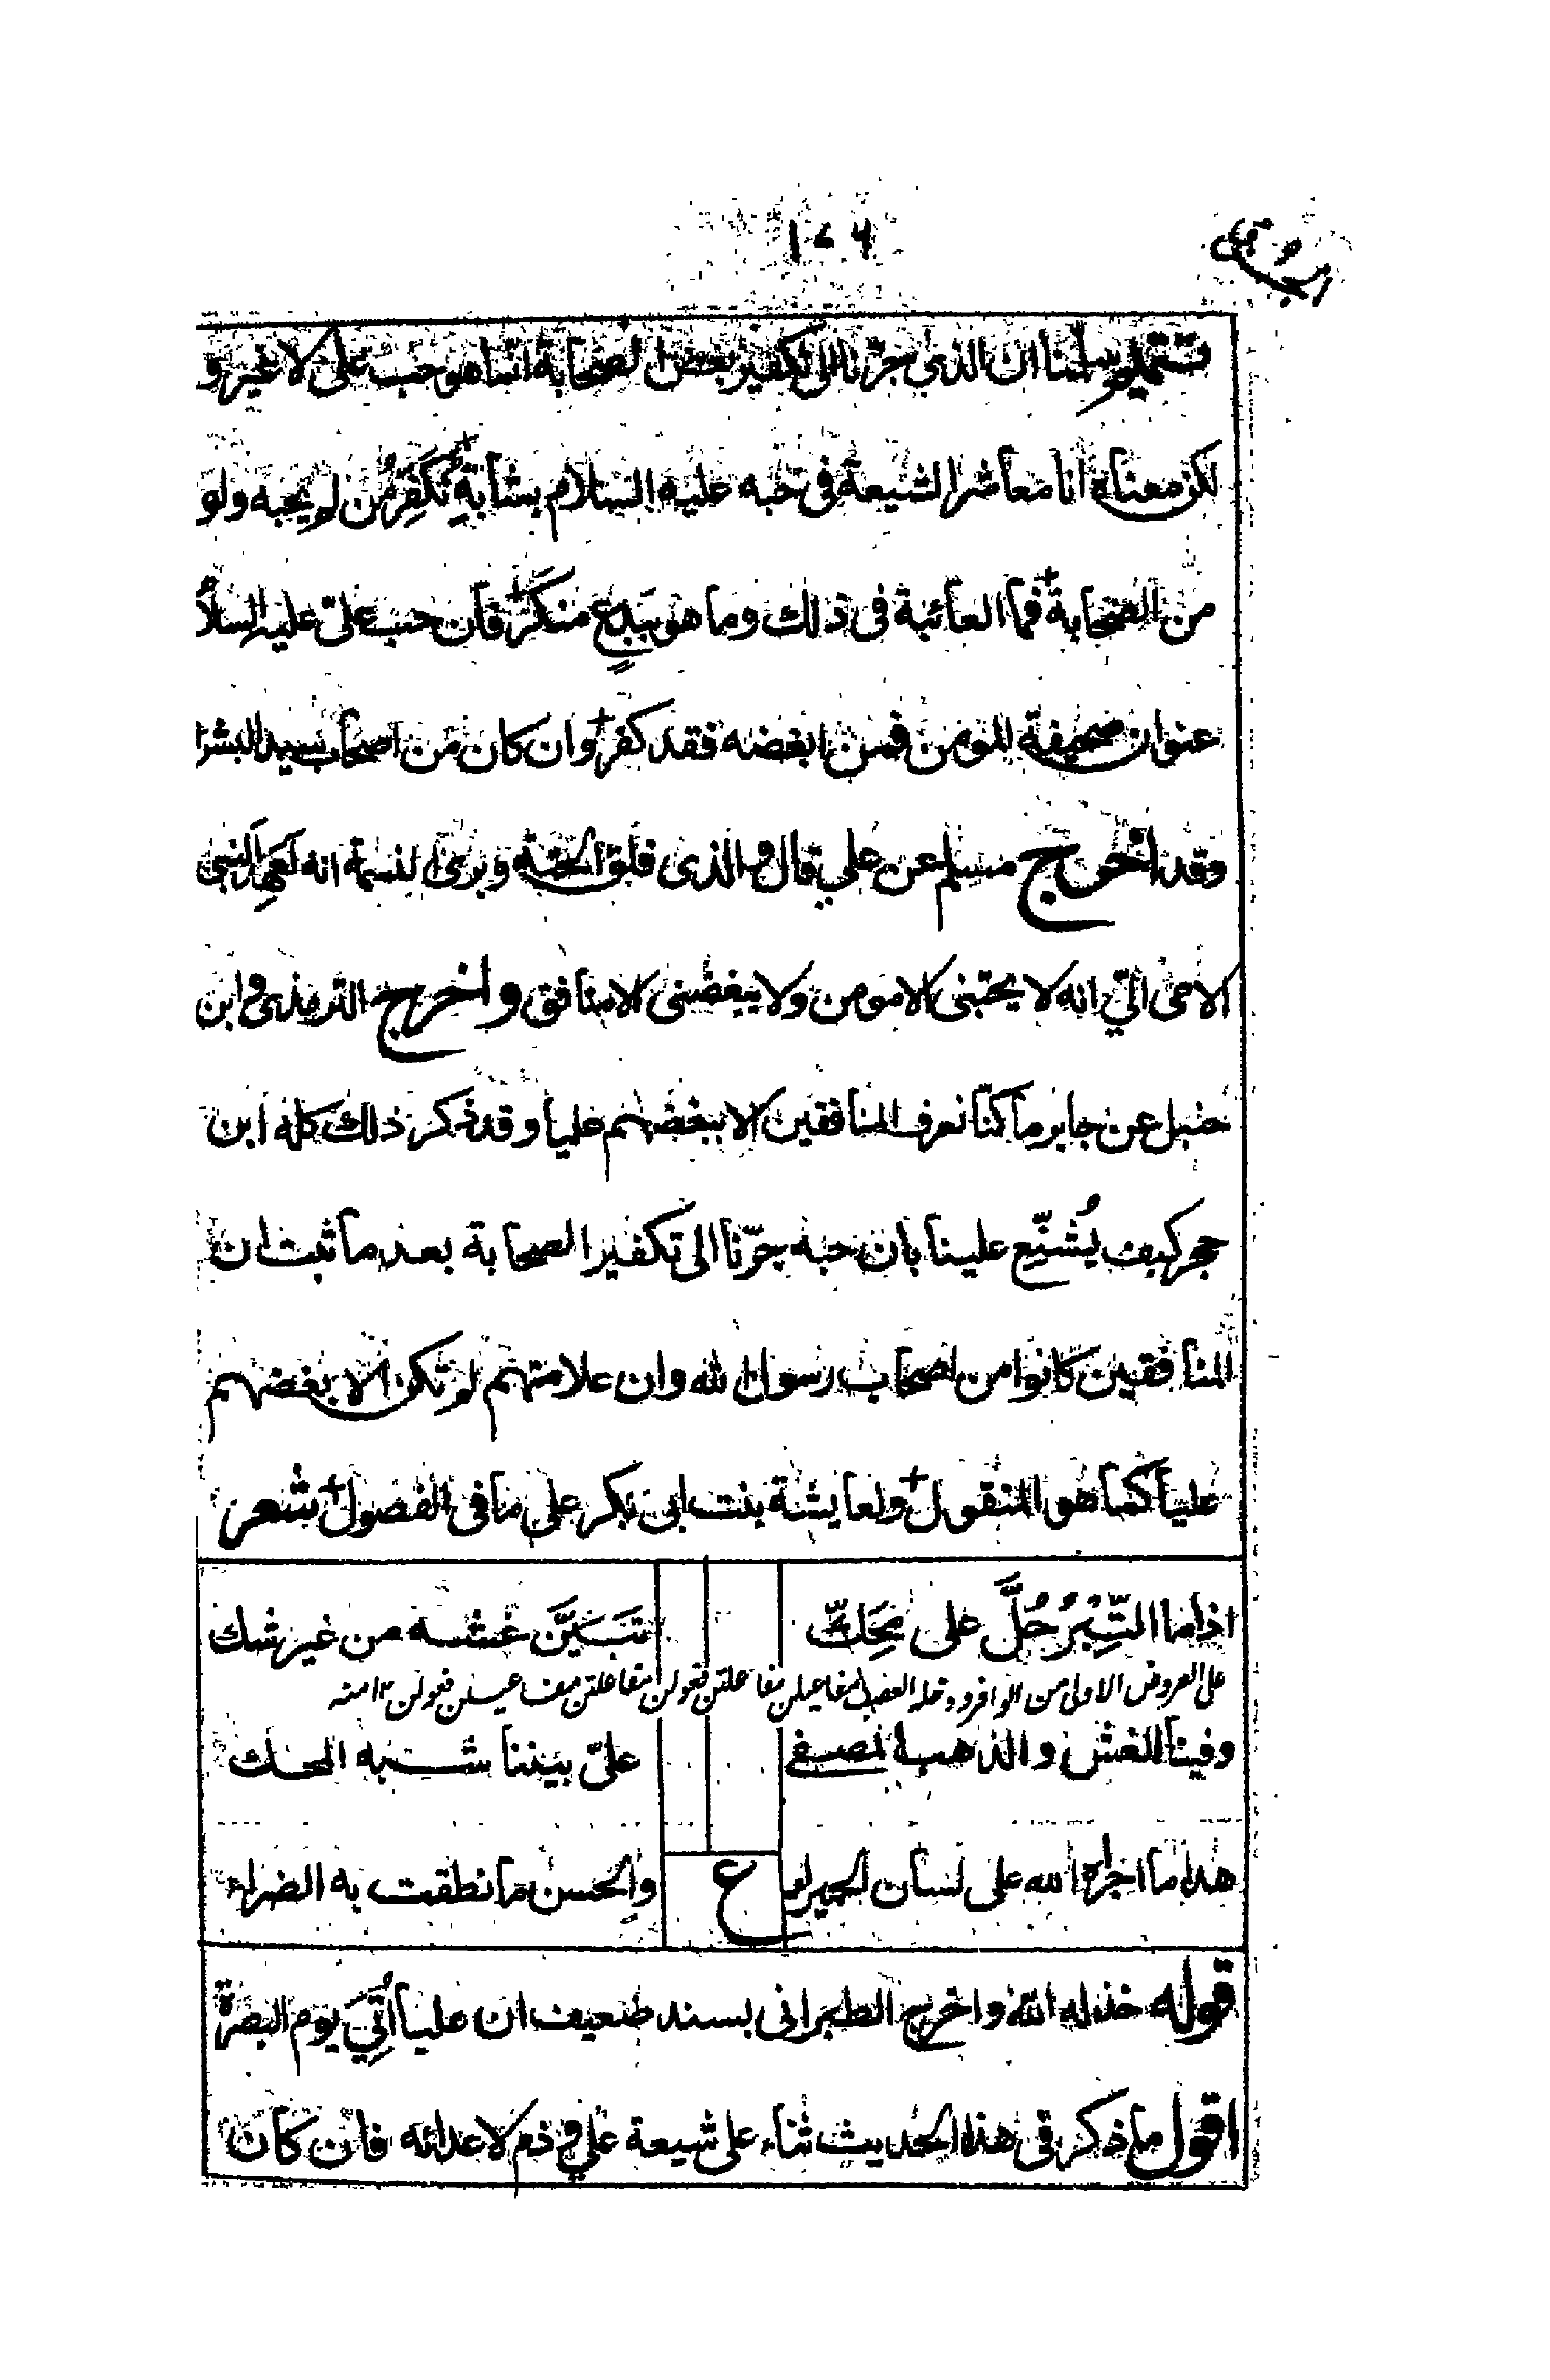 ١٠٦
ان الذي جرّنا الى تكفير بعض الصحابة انّما هو حب علي لا غير و
لكن معناه انا معاشر الشيعة في حبه عليه السلام بمثابةٍ نُكَفِّرُ من لم يحبه ولو
من الصحابة فما العائبة في ذلك وما هو ببدعٍ منكر فان حب عليّ عليه السلام
عنوان صحيفة المومن فمن ابغضه فقد كفر وان كان من اصحاب سيد البشر
وقد اخرج مسلم عن علي قال والذى فلق الحبّة وبرئ النسمة انه لعهد النبي
الامي اليّ انه لا يحبّنى الا مومن ولا يبغضنى الا منافق واخرج الترمذى وابن
حنبل عن جابر ما كنّا نعرف المنافقين الا ببغضهم عليا وقد ذكر ذلك كله ابن
حجر كيف يُشنّع علينا بان حبه جرّنا الى تكفير الصحابة بعد ما ثبت ان
المنافقين كانوا من اصحاب رسول الله وان علامتهم لم تكن الا بغضهم
علياً كما هو المنقول ولعايشة بنت ابى بكر على ما فى الفصول شعر
اذا ما التِّبْرُ حُلَّ على مِحَكّ تَبَيَّن غشه من غير شك
على العروض الاولى من الوافر ودخله العصب مفاعيلن مفاعلتن فعولن مفاعلتن مفاعيلن فعولن ١٢ منه
وفينا الغش والذهب المصفى عليّ بيننا شبه المحك
هذا ما اجراه الله على لسان الحميراء ع والحسن ما نطقت به الضراء
قوله خذله الله واخرج الطبرانى بسند ضعيف ان علياً أُتِيَ يوم البصرة
اقول ما ذكر فى هذا الحديث ثناء على شيعة علي و ذم لاعدائه فان كان